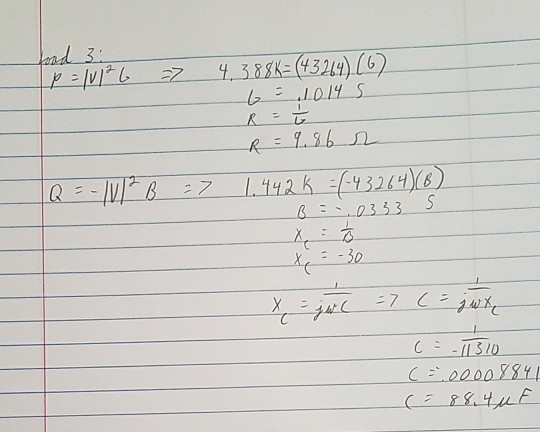 Load 3:
P = |V|² G => 4.388K = (43264)(G)
G = .1014 S
R = 1/G
R = 9.86 Ω
Q = -|V|² B => 1.442K = (-43264)(B)
B = -.0333 S
X_C = 1/B
X_C = -30
X_C = 1/jωC => C = 1/jωX_C
C = 1/-11310
C = .00008841
C = 88.4 μF